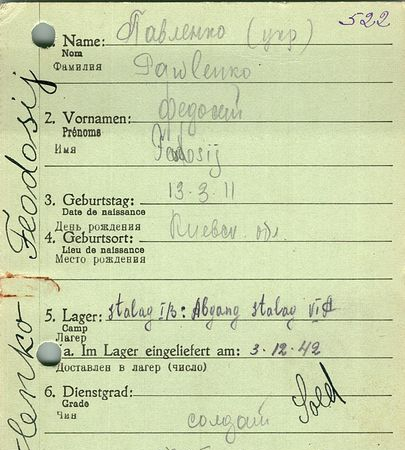 522
1. Name: Павленко (укр)
Nom
Фамилия Pawlenko
2. Vornamen: Федосий
Prénoms
Имя Fedosij
3. Geburtstag: 13-3-11
Date de naissance
День рождения
4. Geburtsort: Киевск. обл.
Lieu de naissance
Место рождения
5. Lager: Stalag I/B: Abgang Stalag VI A
Camp
Лагер
a. Im Lager eingeliefert am: 3-12-42
Доставлен в лагер (число)
6. Dienstgrad: Sold
Grade
Чин солдат
lenko Feodosij